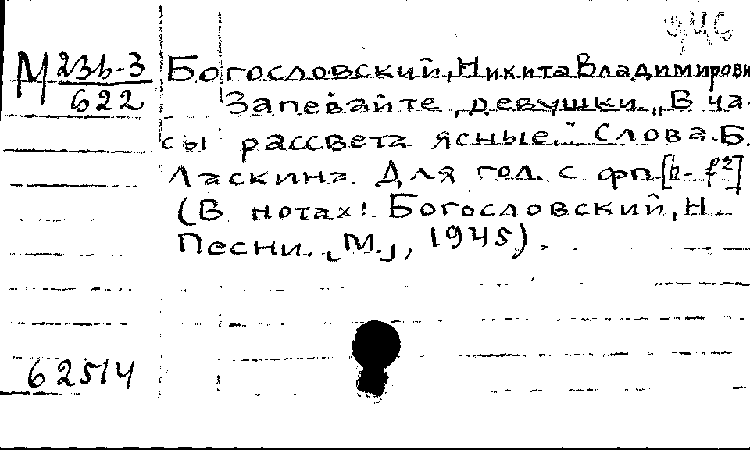 946
М 23b-3 Богословский, Никита Владимирови
622 Запевайте, девушки. „В ча-
сы рассвета ясные..." Слова Б.
Ласкина. Для гол. с фп. [b-f²]
(В нотах: Богословский, Н.
Песни. [М.], 1945).
62514